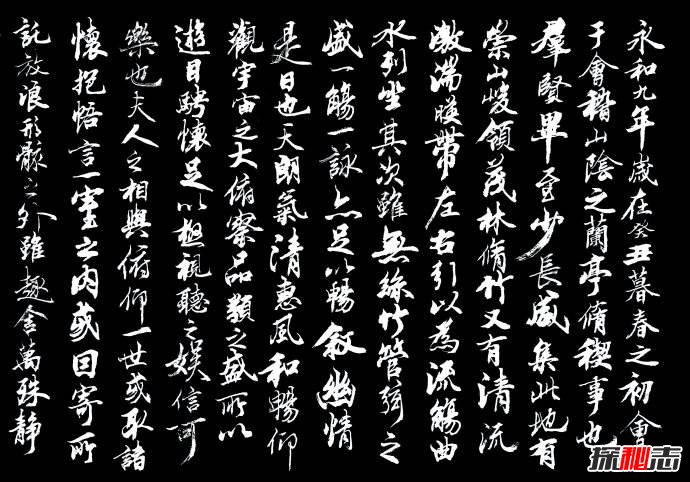 永和九年歲在癸丑暮春之初會
于會稽山陰之蘭亭脩稧事也
羣賢畢至少長咸集此地有
崇山峻領茂林脩竹又有清流
激湍暎帶左右引以為流觴曲
水列坐其次雖無絲竹管絃之
盛一觴一詠亦足以暢敘幽情
是日也天朗氣清惠風和暢仰
觀宇宙之大俯察品類之盛所以
遊目騁懷足以極視聽之娛信可
樂也夫人之相與俯仰一世或取諸
懷抱悟言一室之內或因寄所
託放浪形骸之外雖趣舍萬殊靜
探秘志